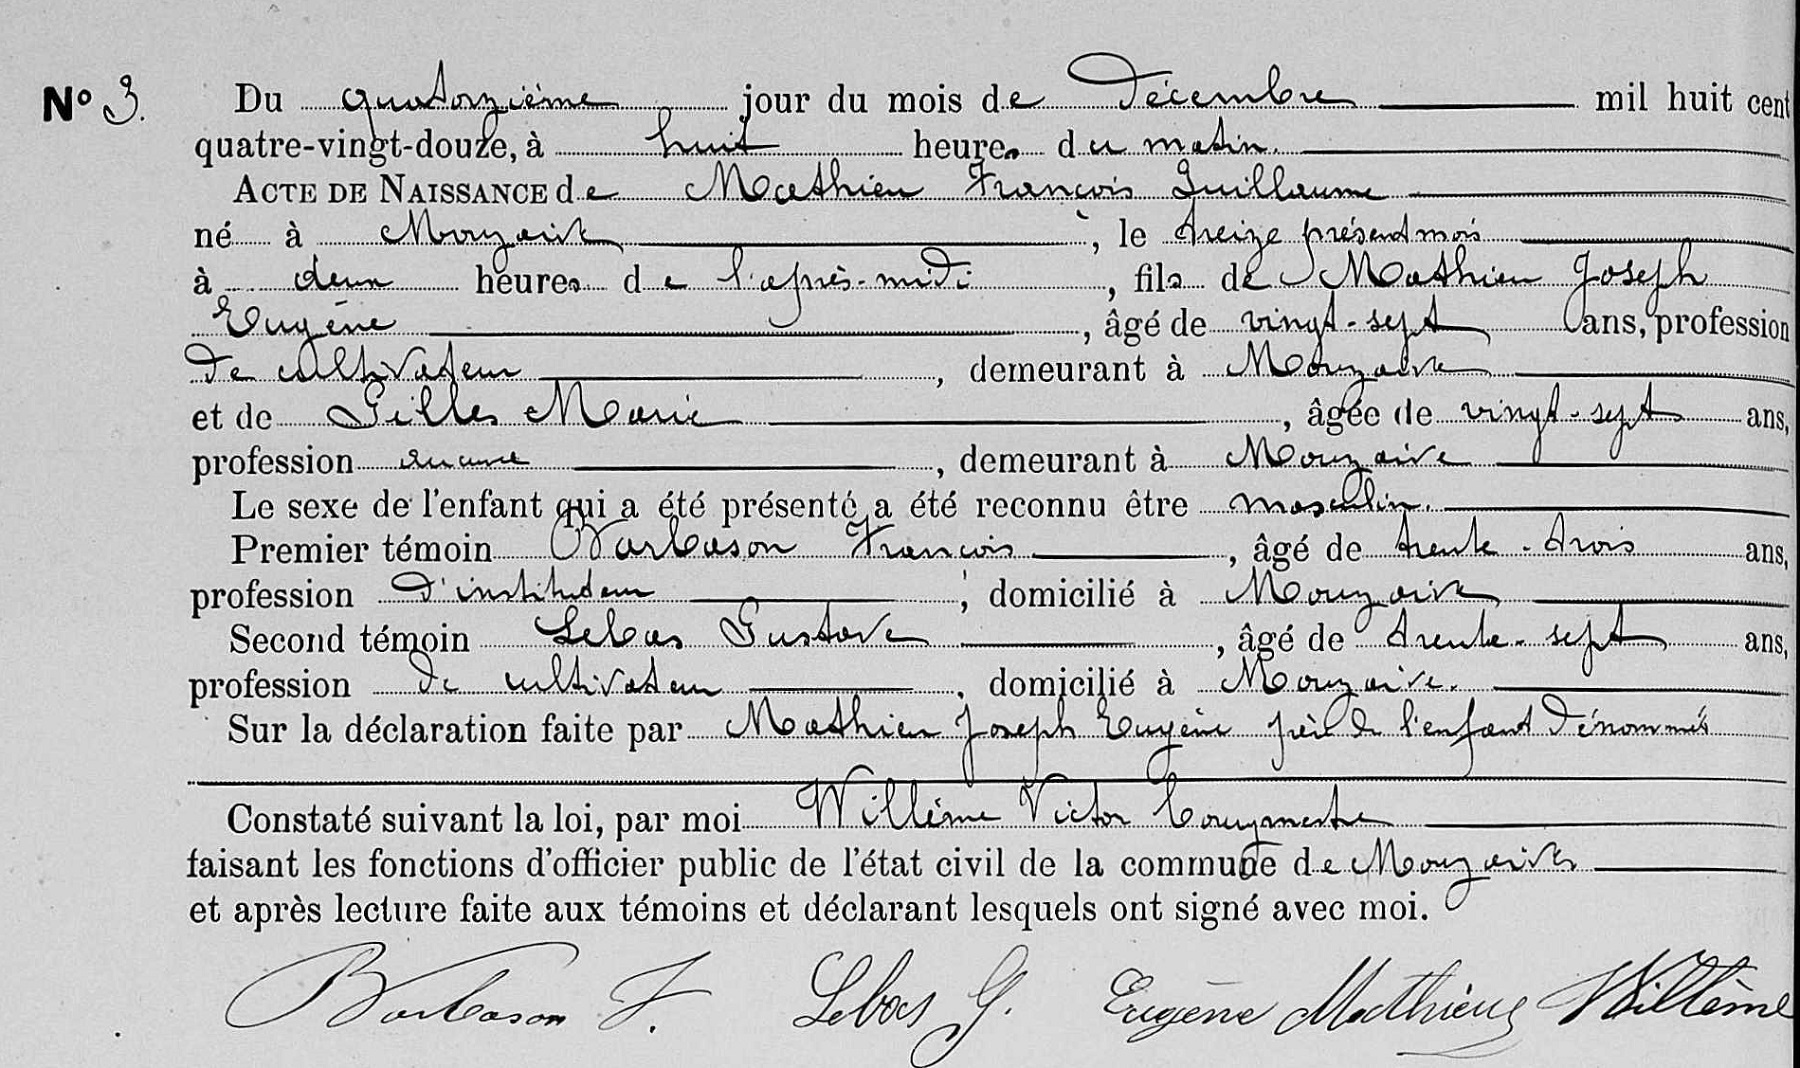 N° 3. Du quatorzième jour du mois de Décembre mil huit cent
quatre-vingt-douze, à huit heures du matin.
ACTE DE NAISSANCE de Mathieu François Guillaume
né à Mouzaive, le treize présent mois
à deux heures de l'après-midi, fils de Mathieu Joseph
Eugène, âgé de vingt-sept ans, profession
de cultivateur, demeurant à Mouzaive
et de Gilles Marie, âgée de vingt-sept ans,
profession aucune, demeurant à Mouzaive
Le sexe de l'enfant qui a été présenté a été reconnu être masculin.
Premier témoin Barbason François, âgé de trente-trois ans,
profession d'instituteur, domicilié à Mouzaive
Second témoin Lebas Gustave, âgé de trente-sept ans,
profession de cultivateur, domicilié à Mouzaive.
Sur la déclaration faite par Mathieu Joseph Eugène père de l'enfant dénommé
Constaté suivant la loi, par moi Willème Victor Bourgmestre
faisant les fonctions d'officier public de l'état civil de la commune de Mouzaive
et après lecture faite aux témoins et déclarant lesquels ont signé avec moi.
Barbason F. Lebas G. Eugène Mathieu Willème